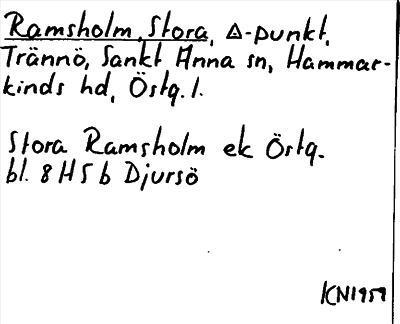 Ramsholm, Stora, △-punkt,
Trännö, Sankt Anna sn, Hammar-
kinds hd, Östg. l.
Stora Ramsholm ek Östg.
bl. 8H5b Djursö
KN1959